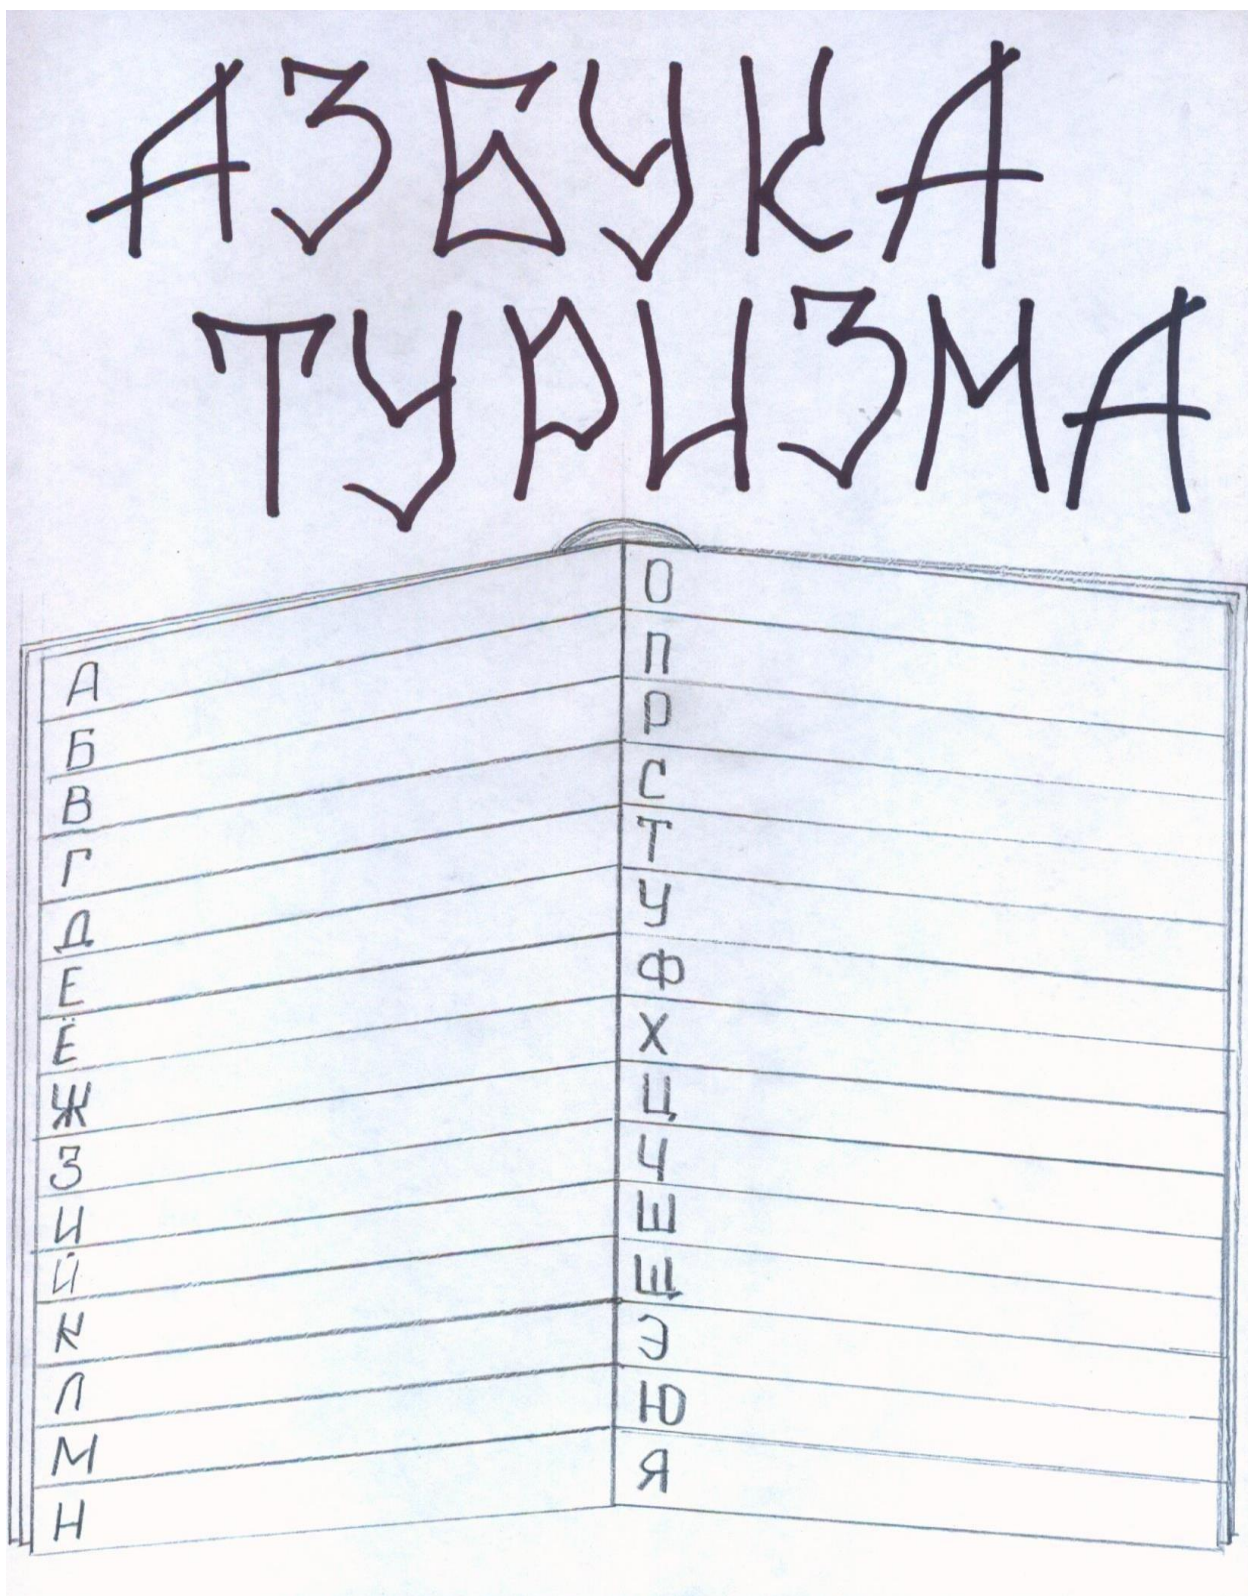 АЗБУКА
ТУРИЗМА
А
Б
В
Г
Д
Е
Ё
Ж
З
И
Й
К
Л
М
Н
О
П
Р
С
Т
У
Ф
Х
Ц
Ч
Ш
Щ
Э
Ю
Я